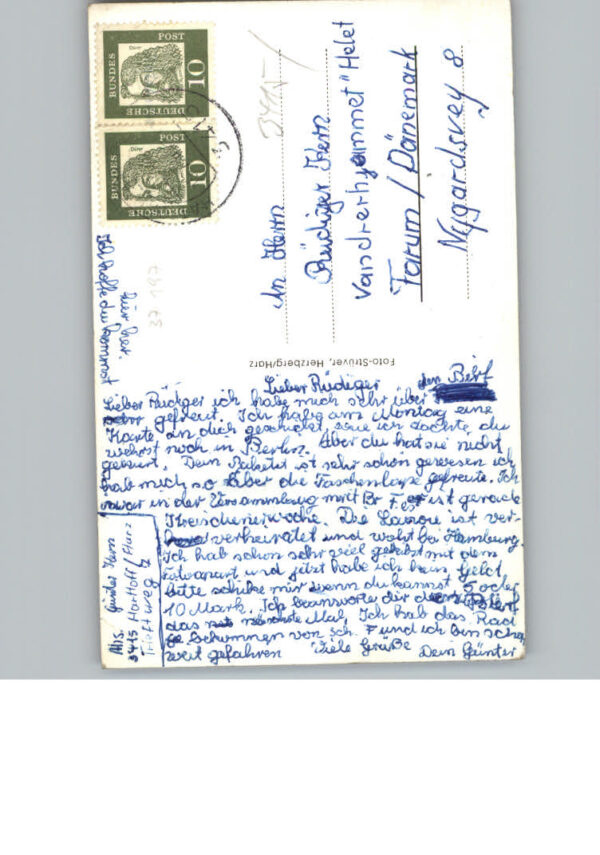 DEUTSCHE
BUNDES
POST
10
Dürer
DEUTSCHE
BUNDES
POST
10
Dürer
3415/
37 197
An Herrn
Rüdiger Kern
Vandrerhjemmet "Helet
Farum / Dänemark
Nygårdsvej 8
Foto-Strüver, Herzberg/Harz
Ich hoffe du kommst
für her.
Lieber Rüdiger
Lieber Rüdiger ich habe mich sehr über den Brif
gefreut. Ich habe am Montag eine
Karte an dich geschickt, wie ich dachte, du
wehrst noch in Berlin. Aber du hat sie nicht
gekrirt. Dein Paketet ist sehr schön gewesen ich
hab mich so über die Taschenlape gefreute. Ich
war in der Versammlung mit Br F. es ist gerade
Kreisdienerwoche. Die ist ver-
verheiratet und wohnt bei Hamburg.
Ich hab schon sehr viel mit dem
und jitzt habe ich kein Geld
bitte schike mir wenn du kannst 5 oder
10 Mark. Ich beanworte dir den Brif
das nächste Mal. Ich hab das Rad
bekommen von Sch. F und ich bin schon
weit gefahren Viele Grüße Dein Günter
Abs. Günter Kern
3415 Hattorf/Harz
Triftweg 2